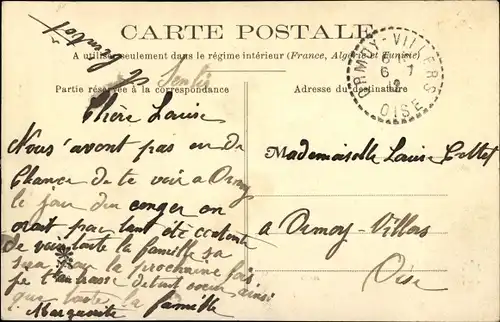 CARTE POSTALE
A utiliser seulement dans le régime intérieur (France, Algérie et Tunisie)
Partie réservée à la correspondance
Adresse du destinataire
ORMOY-VILLERS
6 - 1
OISE
Senlis
Chère Louise
Nous n'avont pas eu de
Chance de te voir a Ormoy
le jour du conger on
orait par tant été contente
de voir toute la famille sa
sera pour la prochaine fois
je t'embrasse de tout coeur ainsi
que toute la famille
Marguerite
Mademoiselle Louise
a Ormoy-Villers
Oise